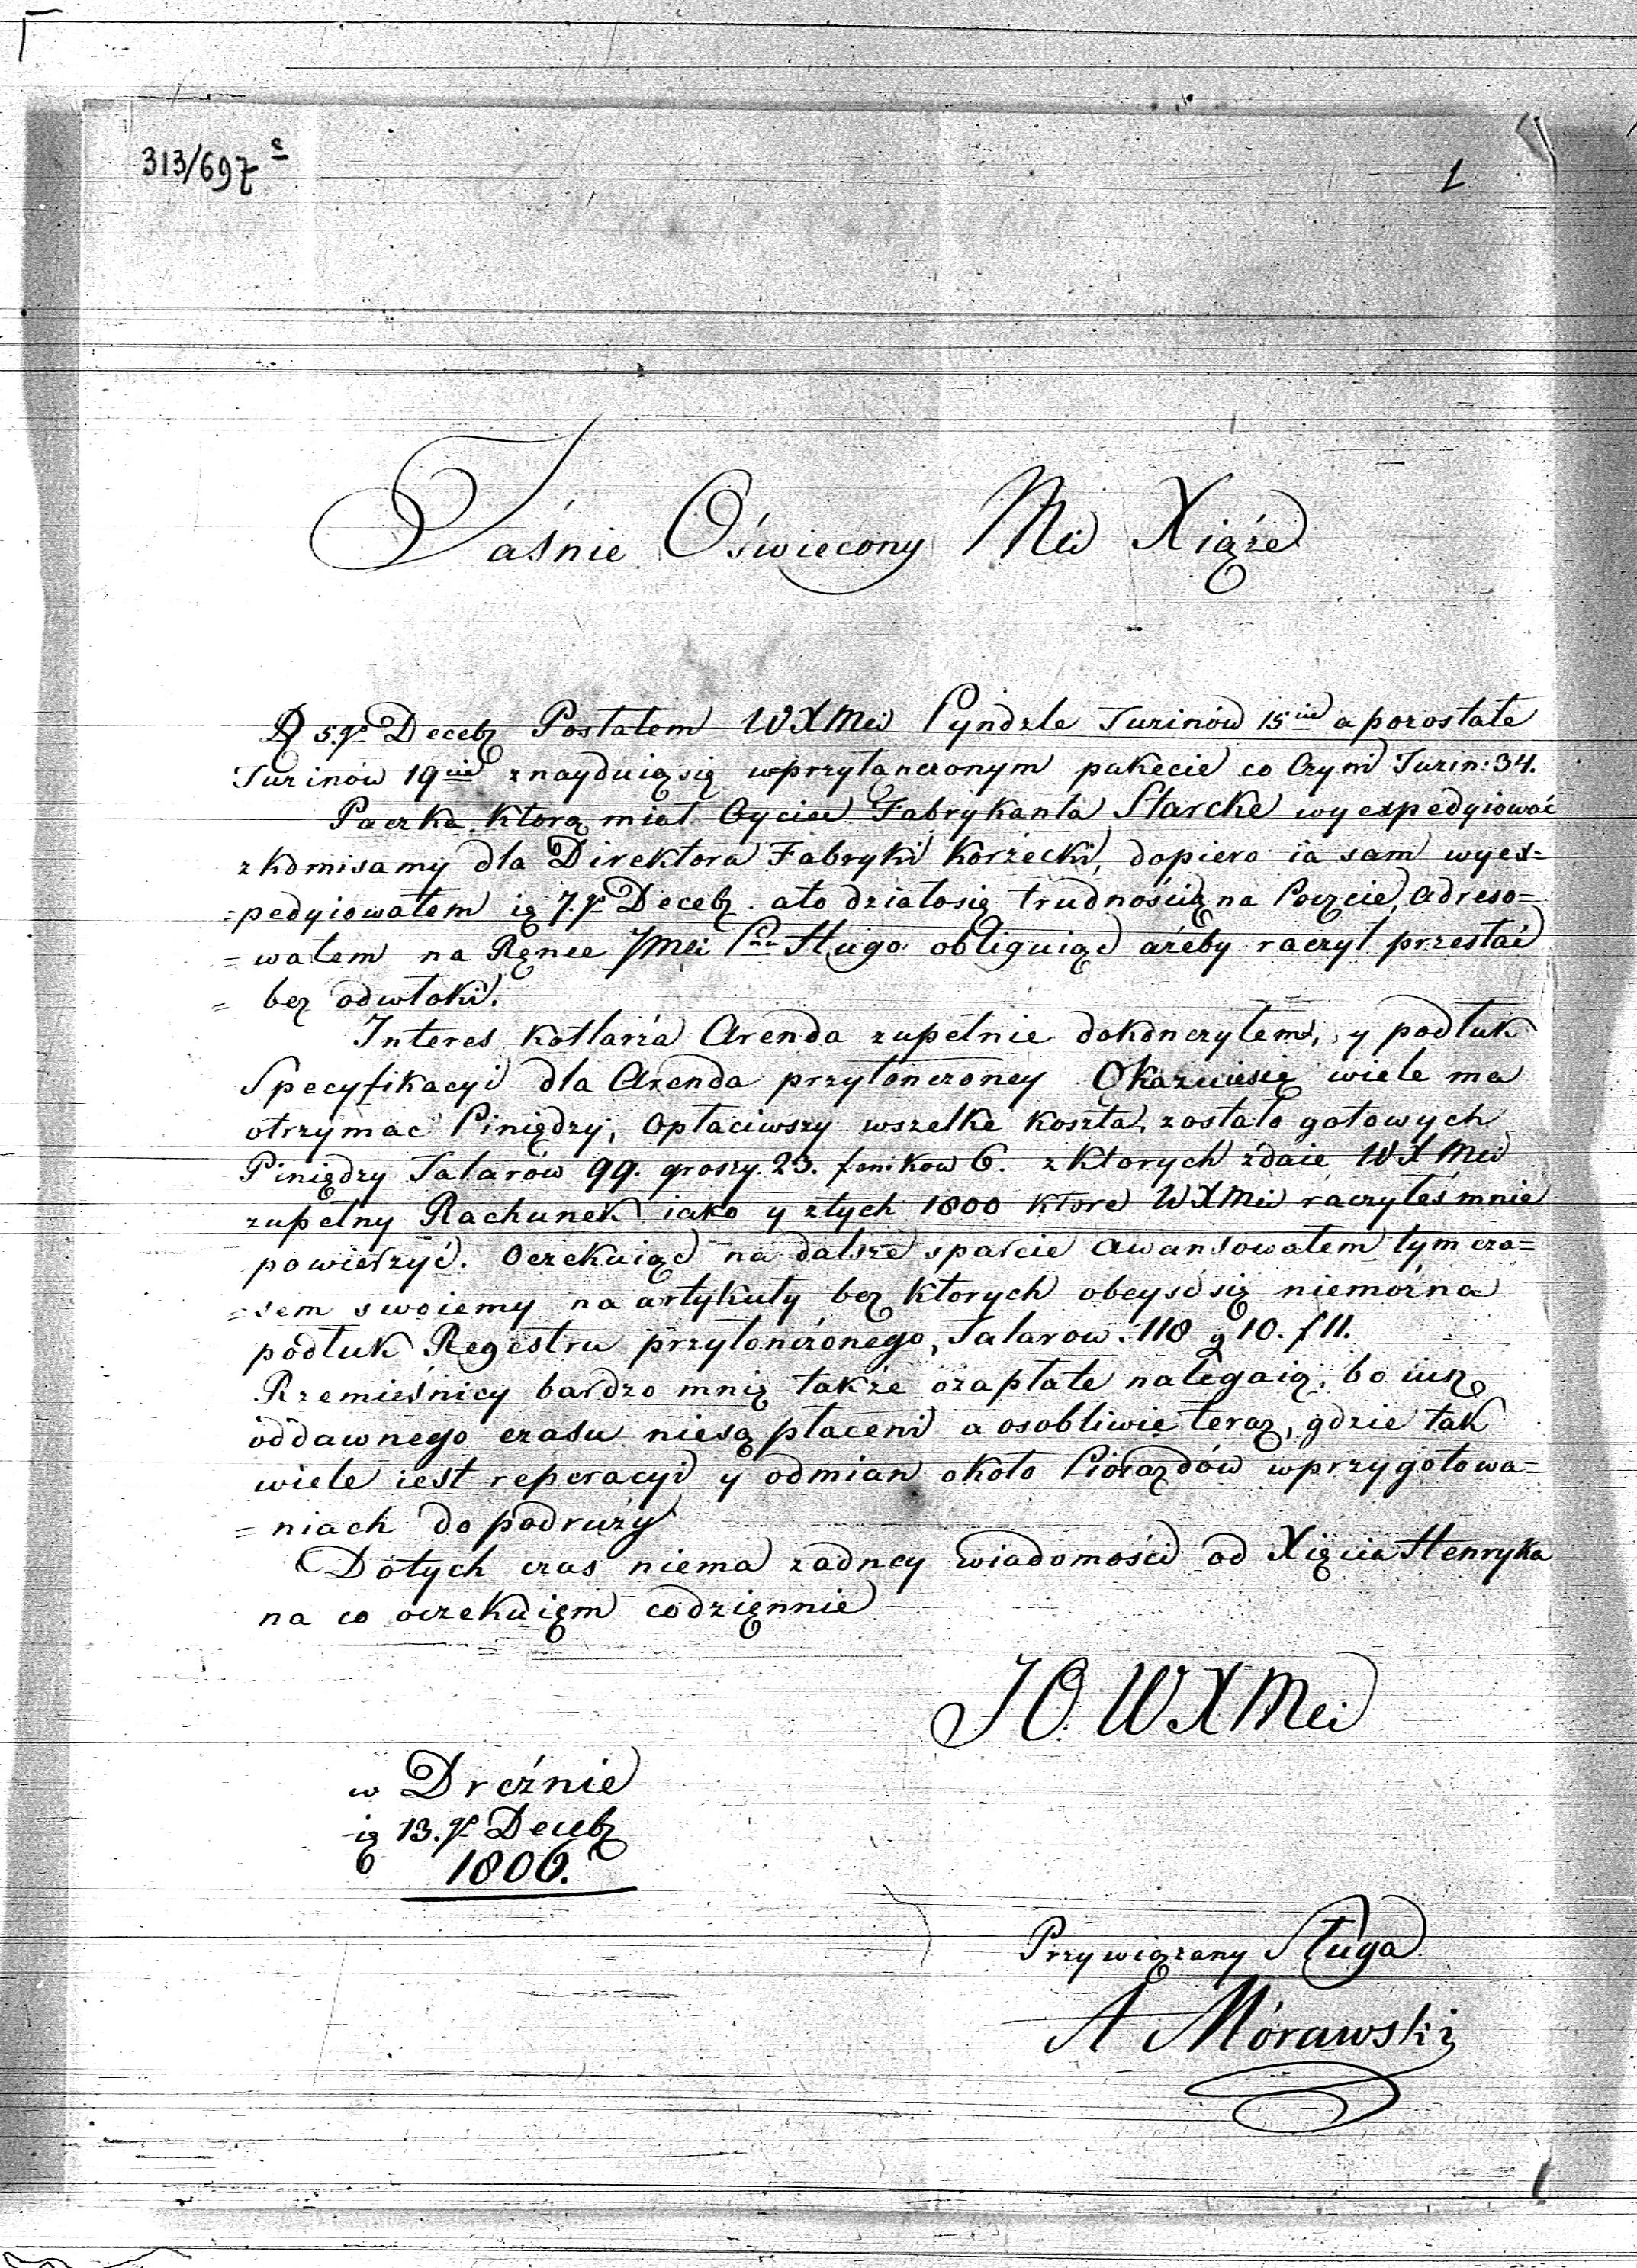 313/697 c
1
Jaśnie Oświecony Mci Xiąże
D 5. Decebr Posłałem WXMci Pyndzle Tuzinów 15cie a pozostałe
Tuzinów 19cie znayduią się wprzyłanczonym pakecie co Czyni Tuzin: 34.
Paczka którą miał Oyciec Fabrykanta Starcke wyexpedyiować
zkomisamy dla Direktora Fabryki Korzecki, dopiero ia sam wyex=
=pedyiowałem ią 7. Decebr. ato działosię trudnością na Poczcie, adreso=
=wałem na Ręnce JMci Pna Hugo obliguiąc ażeby raczył przesłać
= bez odwłoki.
Interes Kotlarza Arenda zupełnie dokończyłem, y podłuk
Specyfikacyi dla Arenda przyłonczoney Okazuiesię wiele ma
otrzymac Piniędzy, Opłaciwszy wszelke koszta, zostało gotowych
Piniędzy Talarów 99. groszy. 23. fenikow 6. zktorych zdaie WXMci
zupełny Rachunek iako y złtych 1800 które WXMci raczyłeś mnie
powierzyć. Oczekuiąc na dalsze sparcie awansowałem tym cza=
=sem swoiemy na artykuły bez ktorych obeyść się niemożna
podłuk Regestru przyłonczonego, Talarow. 118 g 10. f 11.
Rzemieśnicy bardzo mnię także ozapłate nalegaią, bo iusz
oddawnego czasu niesą płaceni a osobliwie teraz, gdzie tak
wiele iest reperacyi y odmian około Poiazdów wprzygotowa=
=niach do podruży
Dotych czas niema zadney wiadomości od Xięcia Henryka
na co oczekuięm codzięnnie
JO. WXMci
w Dreźnie
ią 13. Decebr
1806.
Przywiązany Sługa
A Mórawski